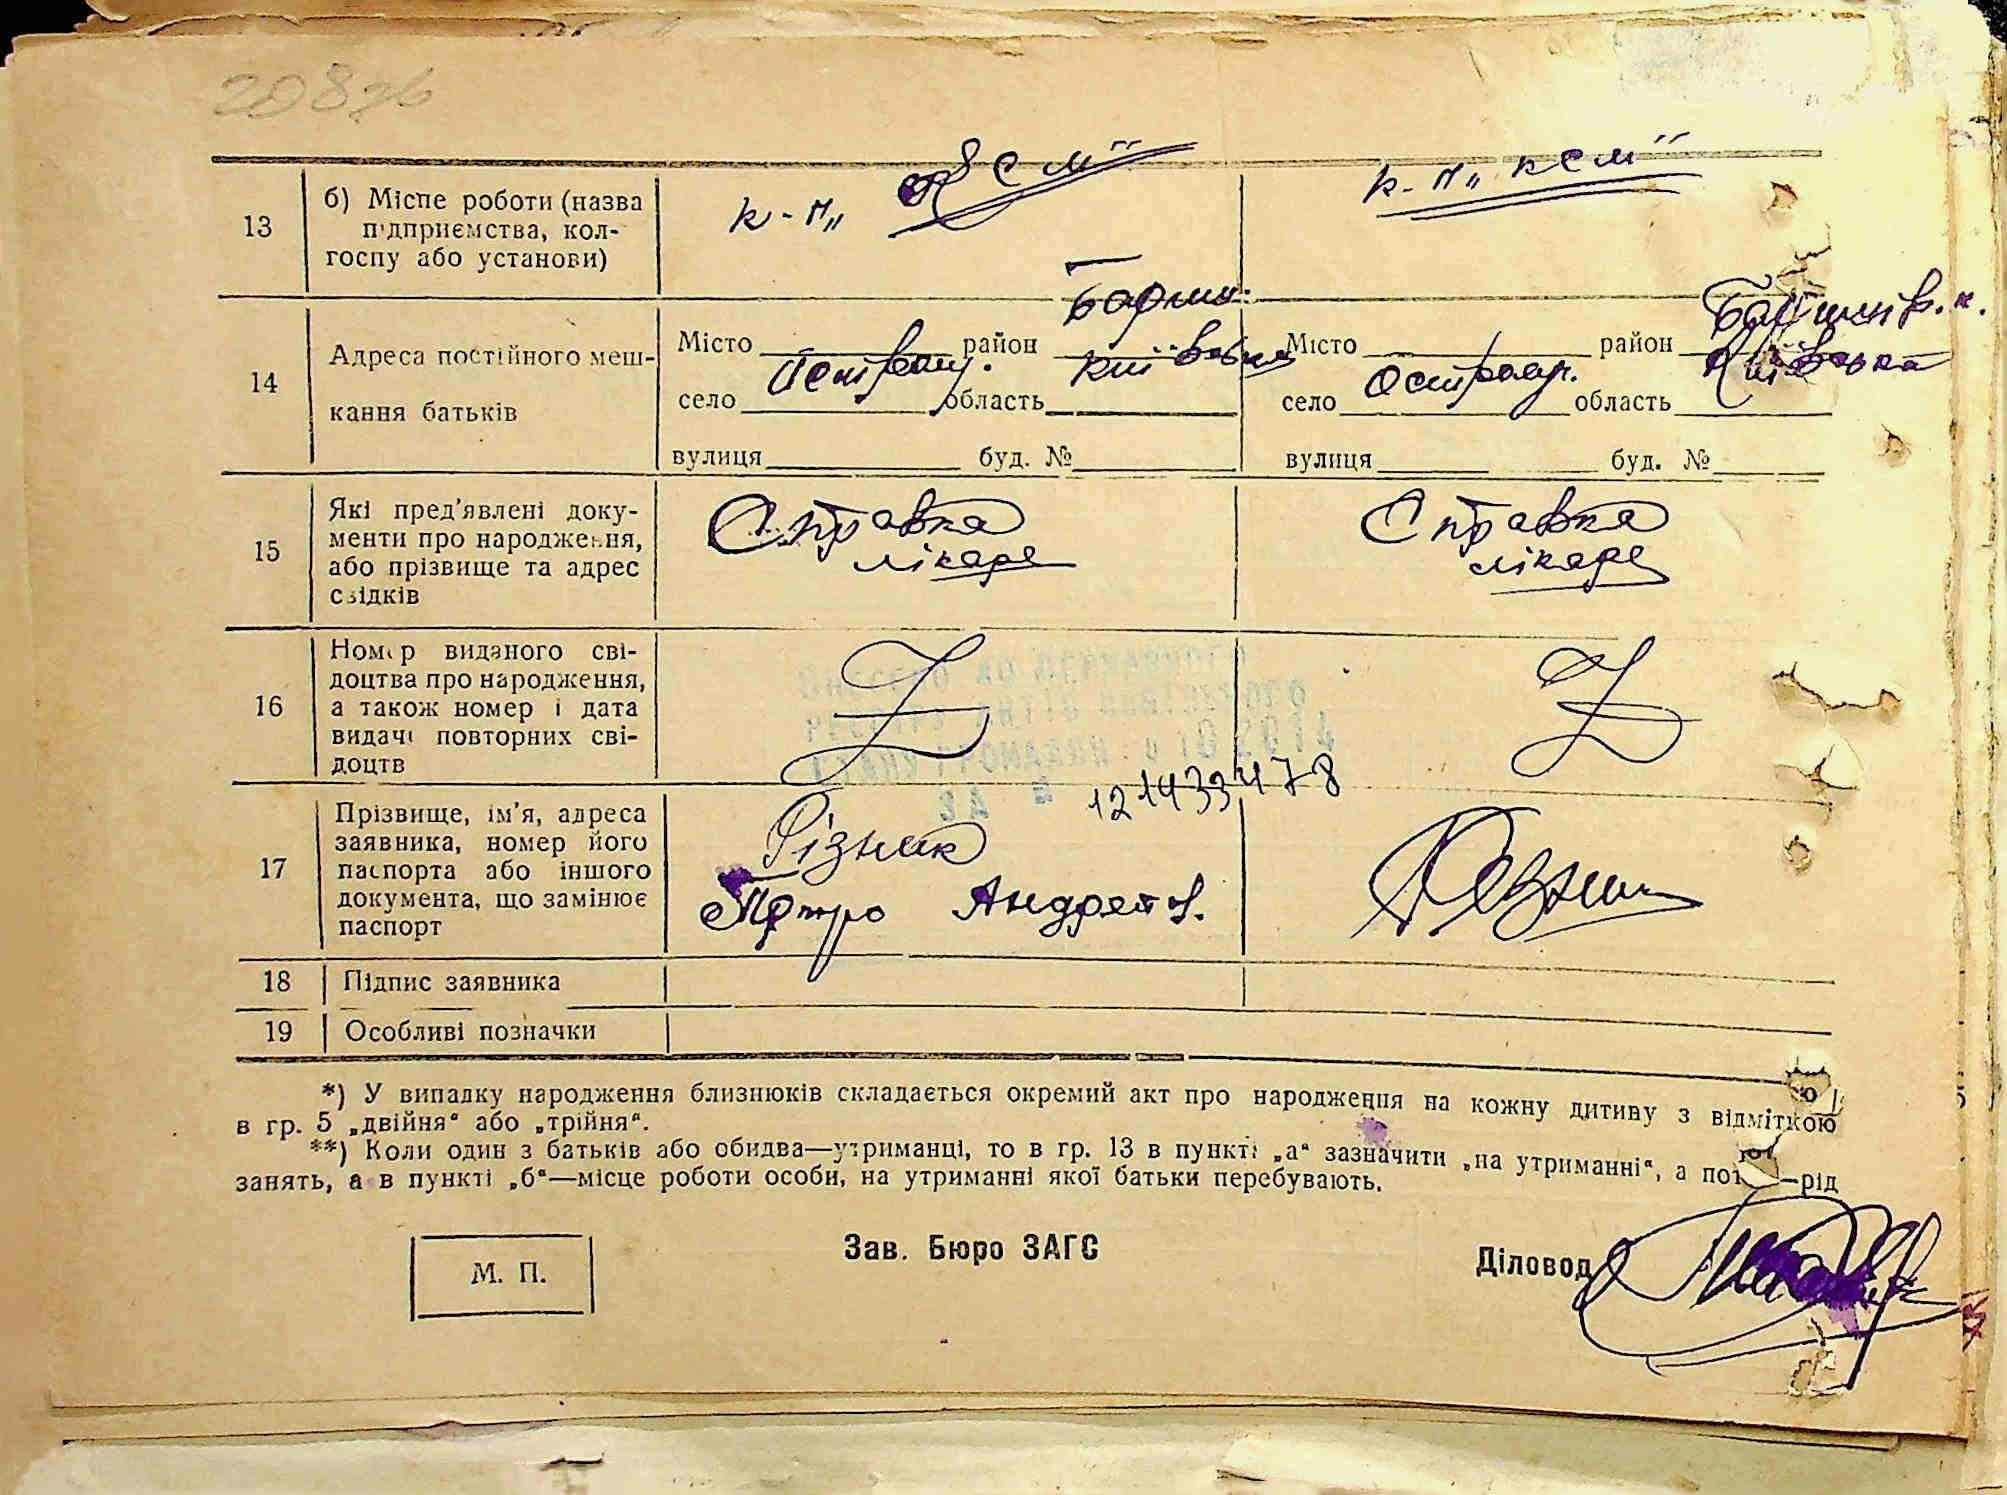 13
б) Місце роботи (назва
підприємства, кол-
госпу або установи)
к-п „
к-п „ КСМ"
14
Адреса постійного меш-
кання батьків
Місто район
село область Київська
вулиця буд. №
Місто район
село область Київська
вулиця буд. №
15
Які пред'явлені доку-
менти про народження,
або прізвище та адрес
свідків
Справка
лікаря
Справка
лікаря
16
Номер виданого сві-
доцтва про народження,
а також номер і дата
видачі повторних сві-
доцтв
Z
Z
12143343478
17
Прізвище, ім'я, адреса
заявника, номер його
паспорта або іншого
документа, що замінює
паспорт
Різник
Петро
18
Підпис заявника
19
Особливі позначки
*) У випадку народження близнюків складається окремий акт про народження на кожну дитину з відміткою
в гр. 5 „двійня“ або „трійня“.
**) Коли один з батьків або обидва—утриманці, то в гр. 13 в пункті „а“ зазначити „на утриманні“, а —рід
занять, а в пункті „б“—місце роботи особи, на утриманні якої батьки перебувають.
М. П.
Зав. Бюро ЗАГС
Діловод